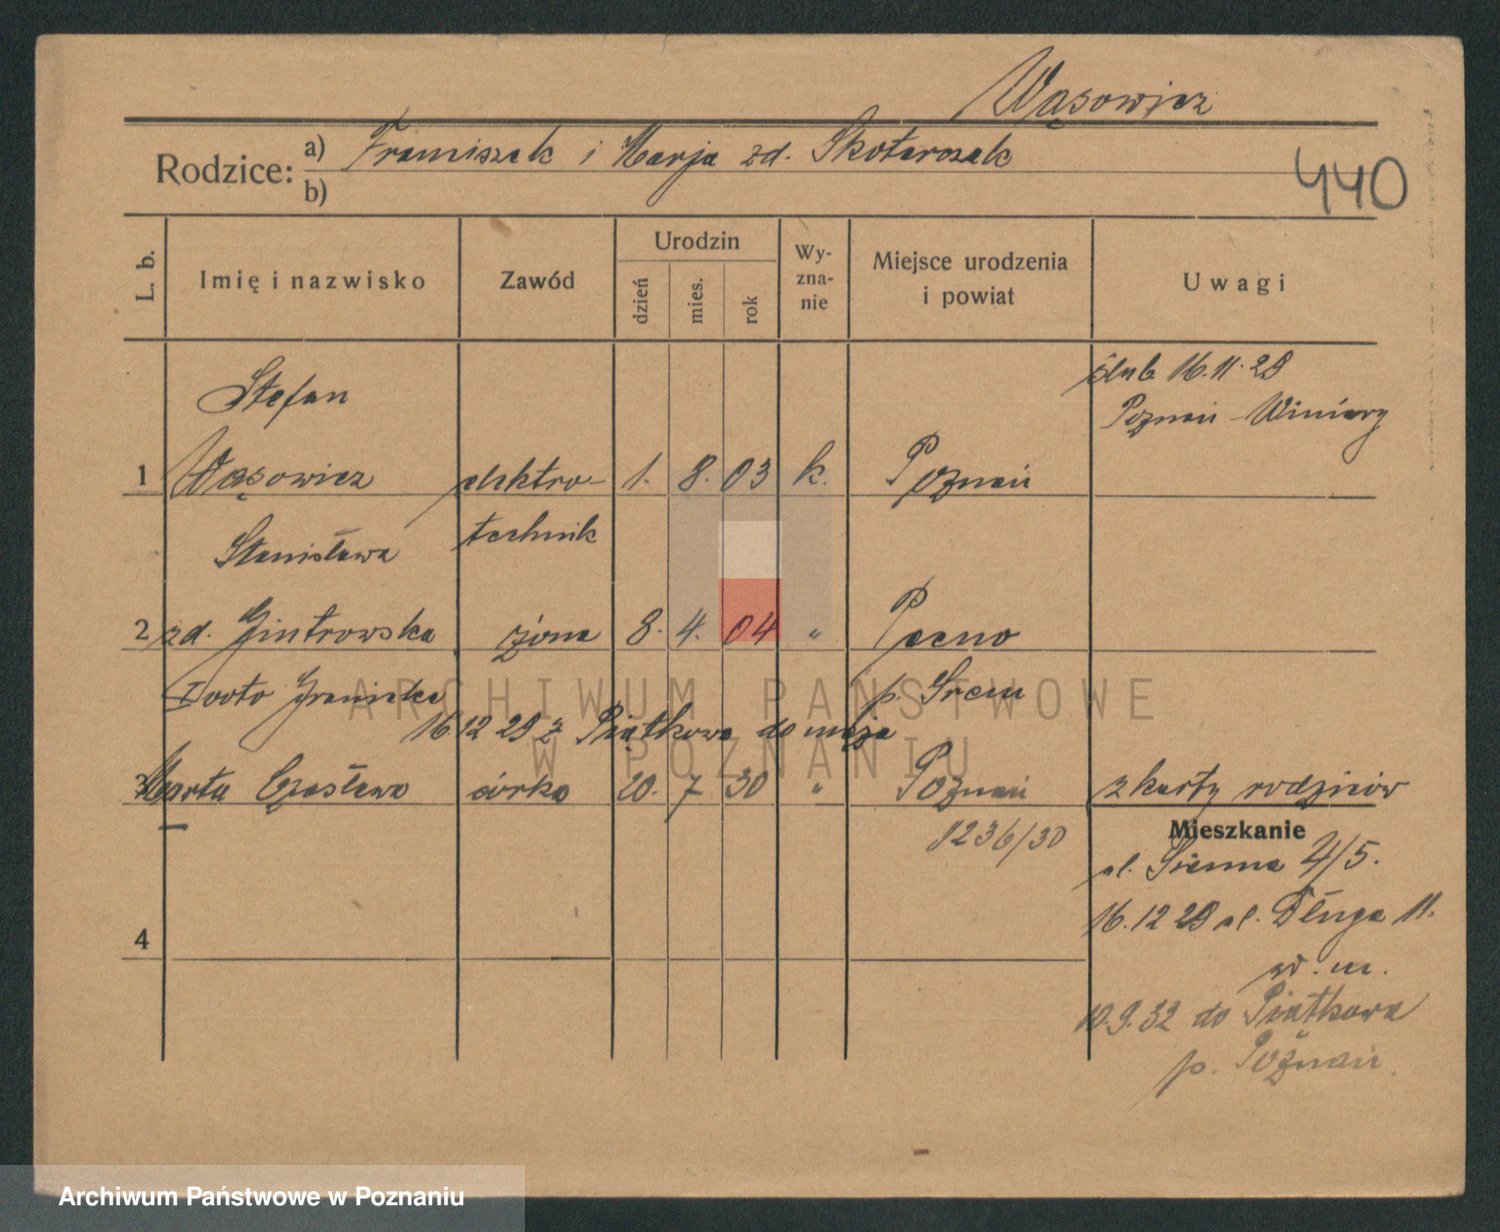 Wąsowicz
Rodzice: a) Franciszek i Marja zd. Skotarczak
b)
440
L. b.
Imię i nazwisko
Zawód
Urodzin
dzień
mies.
rok
Wy-
zna-
nie
Miejsce urodzenia
i powiat
Uwagi
Stefan
ślub 16.11.29
Poznań - Winiary
1 Wąsowicz elektro- 1. 8. 03 k. Poznań
technik
Stanisława
2 zd. Gintrowska żona 8. 4. 04 " Pecno
I voto Graniczka p. Śrem
16 12 29 z Piątkowa do męża
3 Marta Czesława córka 20. 7 30 " Poznań z karty rodziców
1236/30
Mieszkanie
ul. Sienna 4/5.
16.12 29 ul. Długa 11.
w. m.
4
10.9.32 do Piątkowa
p. Poznań.
ARCHIWUM PAŃSTWOWE
W POZNANIU
Archiwum Państwowe w Poznaniu